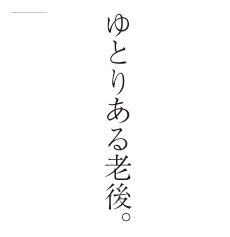 ゆとりある老後。